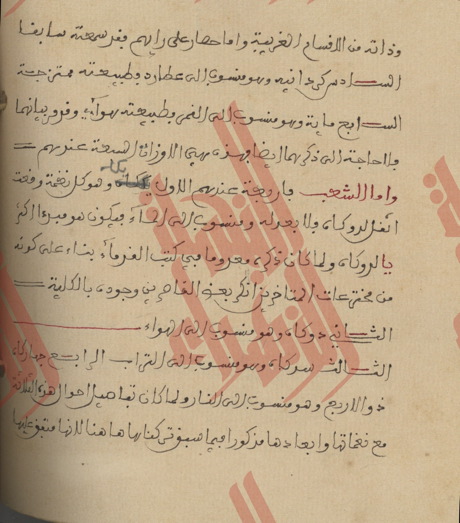 وذاته من الاقسام الغريبة واما حصار على رايهم فقد سمعته سابقا
السادس كردانيه وهو منسوب الى عطارد وطبيعته ممتزجة
السابع ماية وهو منسوب الى القمر وطبيعته هوائي وقد بيانهما
فلا حاجة الى ذكرهما ايضا فهذه هي الاوزان السبعة عندهم
واما الشعب فاربعة عندهم الاول يكاه وهو كل نغمة وقعت
اثقل لدوكاه ولا بعد له ومنسوب الى الماء فيكون هو مبدءا اكثر
بالدوكاه ولما كان ذكره معدوما في كتب القدماء بناء على كونه
من مخترعات المتاخرين انكر بعض القاصرين وجوده بالكلية
الثاني دوكاه وهو منسوب الى الهواء
الثالث سركاه وهو منسوب الى التراب الرابع جهاركاه
ذو الاربع وهو منسوب الى النار ولما كان تفاصيل احوال هذه الثلاثة
مع نغماتها وابعادها مذكورا فيما سبق تركناها هاهنا لانها متفق عليها